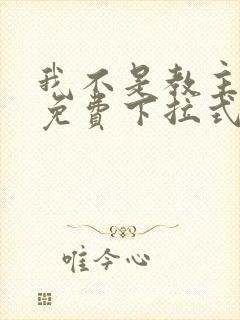 我不是教主
免费下拉式
唯今心